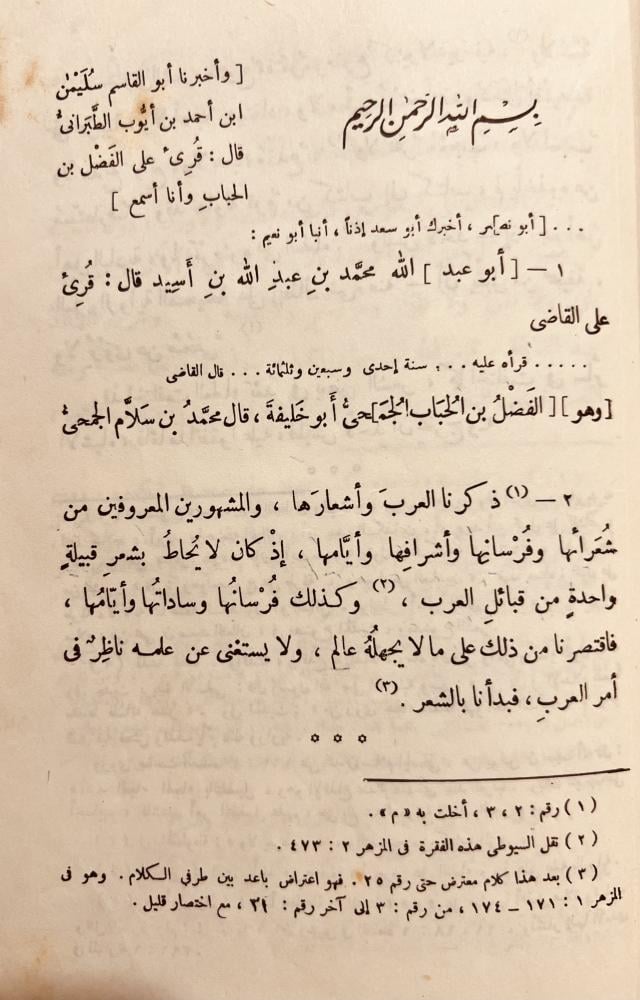 بِسْمِ اللهِ الرَّحْمٰنِ الرَّحِيمِ
[ وأخبرنا أبو القاسم سُلَيْمٰن
ابن أحمد بن أيُّوب الطَّبَرانىُّ
قال : قُرِئ على الفَضْل بن
الحبابِ وأنا أسمع ]
. . . [ أبو نصـ]ـر ، أخبرك أبو سعد إذناً ، أنبا أبو نعيم :
١ — [ أبو عبد ] الله محمَّد بنِ عبدِ الله بنِ أَسِيد قال : قُرِئ
على القاضى
. . . . . قرأه عليه . . . سنة إحدى وسبعين وثلثمائة . . . قال القاضى
[ وهو ] [ الفَضْلُ بن الحُبَاب الجُمَـ]ـحىُّ أَبو خَليفةَ ، قال محمَّدُ بن سَلاَّم الجمحىُّ
٢ — (١) ذكرنا العربَ وأشعارَها ، والمشهورين المعروفين من
شُعَرائها وفُرْسانِها وأشرافِها وأيَّامها ، إذْ كان لا يُحاطُ بشعرِ قبيلةٍ
واحدةٍ من قبائلِ العرب ، (٢) وكذلك فُرْسانُها وساداتُها وأيّامُها ،
فاقتصرنا من ذلك على ما لا يجهلُهُ عالم ، ولا يستغنى عن علمه ناظِرٌ فى
أمر العربِ ، فبدأنا بالشعر . (٣)
* * *
( ١ ) رقم : ٢ ، ٣ ، أخلت به « م » .
( ٢ ) نقل السيوطى هذه الفقرة فى المزهر ٢ : ٤٧٣ .
( ٣ ) بعد هذا كلام معترض حتى رقم ٢٥ . فهو اعتراض باعد بين طرفي الكلام . وهو فى
المزهر ١ : ١٧١ — ١٧٤ ، من رقم : ٣ إلى آخر رقم : ٣١ ، مع اختصار قليل .